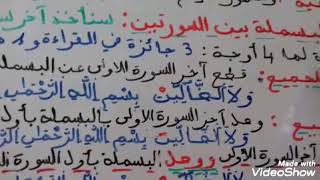 البسملة بين السورتين: سنأخذ آخر
لها 4 أوجه: 3 جائزة في القراءة و 1
الجميع: قطع آخر السورة الأولى عن البسملة
وَلَا الضَّالِّينَ بِسْمِ اللَّهِ الرَّحْمَٰنِ
وصل آخر السورة الأولى بالبسملة بأول
وَلَا الضَّالِّينَ بِسْمِ اللَّهِ الرَّحْمَٰنِ
آخر السورة الأولى ووصل البسملة بأول السورة
Made with
VideoShow